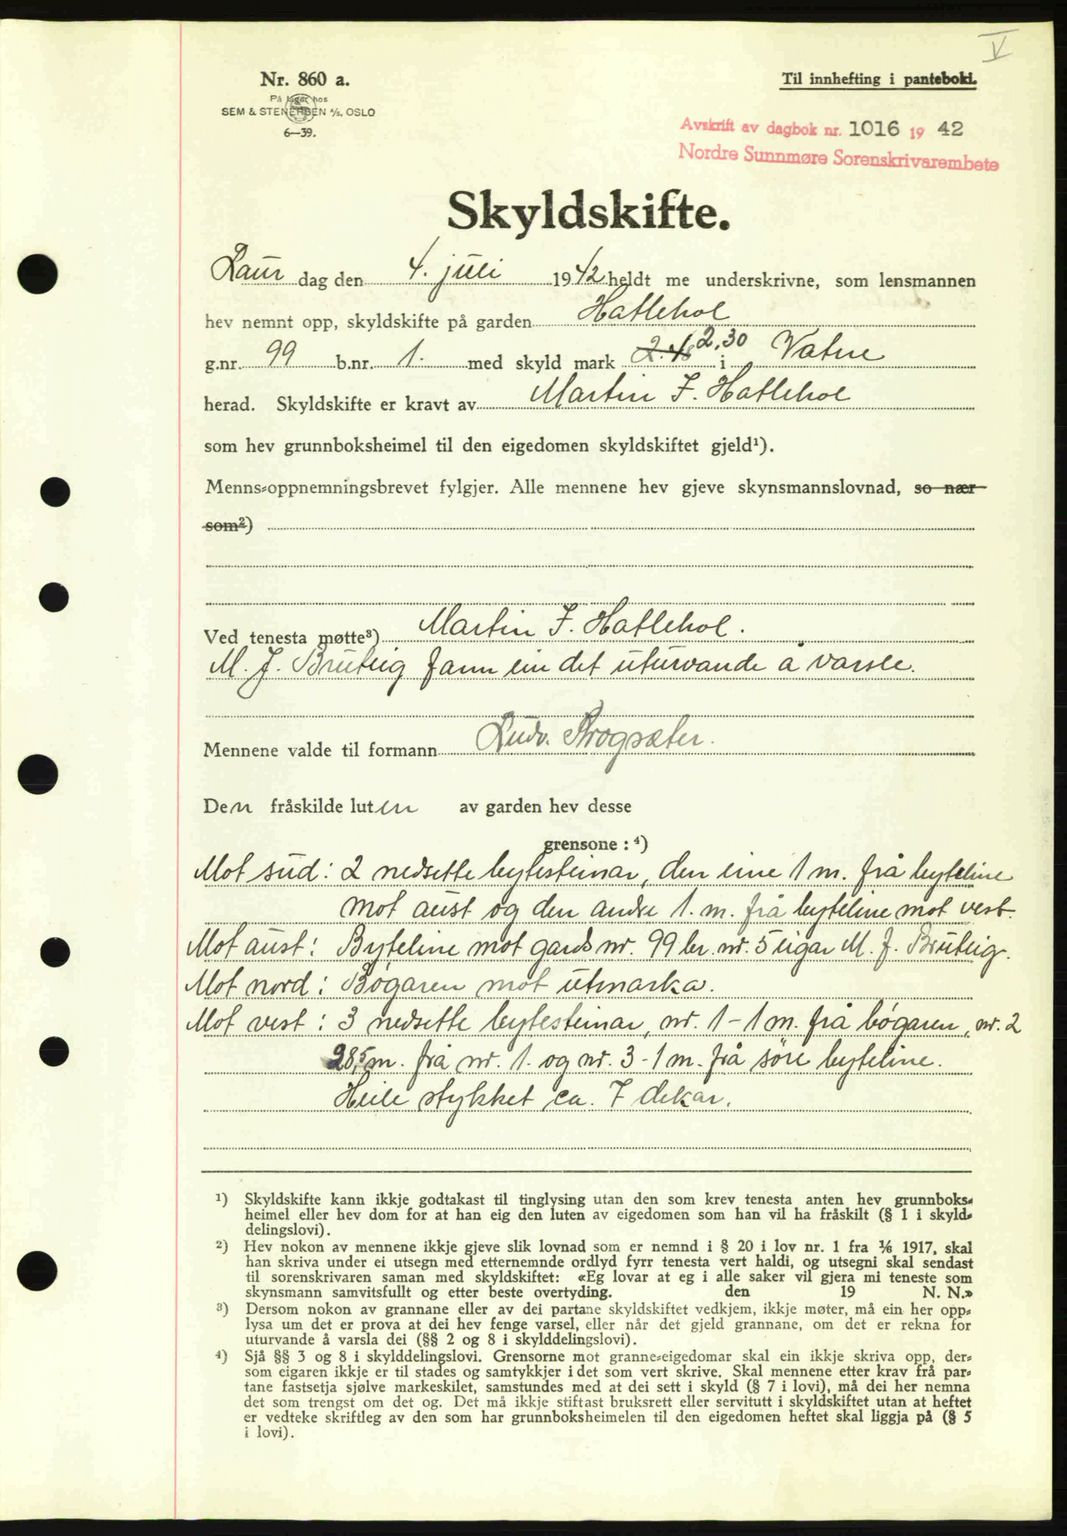 V
Nr. 860 a.
På lager hos
SEM & STENERSEN A/S, OSLO
6—39.
Til innhefting i pantebok.
Avskrift av dagbok nr. 1016 19 42
Nordre Sunnmøre Sorenskrivarembete
Skyldskifte.
Laur dag den 4. juli 1942 heldt me underskrivne, som lensmannen
hev nemnt opp, skyldskifte på garden Hatlehol
g.nr. 99 b.nr. 1. med skyld mark 2.48 2,30 i Vatne
herad. Skyldskifte er kravt av Martin F. Hatlehol
som hev grunnboksheimel til den eigedomen skyldskiftet gjeld¹).
Menns-oppnemningsbrevet fylgjer. Alle mennene hev gjeve skynsmannslovnad, so nær
som²)
Ved tenesta møtte³) Martin F. Hatlehol.
M. J. Bruteig fann ein det uturvande å varsle.
Mennene valde til formann Ludv. Frogsæter.
Den fråskilde luten av garden hev desse
grensone : ⁴)
Mot sud: 2 nedsette bytesteinar, den eine 1 m. frå byteline
mot aust og den andre 1. m. frå byteline mot vest.
Mot aust: Byteline mot gards nr. 99 br. nr. 5 eigar M. J. Bruteig.
Mot nord: Bøgaren mot utmarka.
Mot vest: 3 nedsette bytesteinar, nr. 1 - 1 m. frå bøgaren, nr. 2
28,5 m. frå nr. 1. og nr. 3 - 1 m. frå søre byteline.
Heile stykket ca. 7 dekar.
¹) Skyldskifte kann ikkje godtakast til tinglysing utan den som krev tenesta anten hev grunnboks-
heimel eller hev dom for at han eig den luten av eigedomen som han vil ha fråskilt (§ 1 i skyld-
delingslovi).
²) Hev nokon av mennene ikkje gjeve slik lovnad som er nemnd i § 20 i lov nr. 1 fra ⅙ 1917, skal
han skriva under ei utsegn med etternemnde ordlyd fyrr tenesta vert haldi, og utsegni skal sendast
til sorenskrivaren saman med skyldskiftet: «Eg lovar at eg i alle saker vil gjera mi teneste som
skynsmann samvitsfullt og etter beste overtyding. den 19 N. N.»
³) Dersom nokon av grannane eller av dei partane skyldskiftet vedkjem, ikkje møter, må ein her opp-
lysa um det er prova at dei hev fenge varsel, eller når det gjeld grannane, om det er rekna for
uturvande å varsla dei (§§ 2 og 8 i skylddelingslovi).
⁴) Sjå §§ 3 og 8 i skylddelingslovi. Grensorne mot granne-eigedomar skal ein ikkje skriva opp, der-
som eigaren ikkje er til stades og samtykkjer i det som vert skrive. Skal mennene etter krav frå par-
tane fastsetja sjølve markeskilet, samstundes med at dei sett i skyld (§ 7 i lovi), må dei her nemna
det som trengst om det og. Det må ikkje stiftast bruksrett eller servitutt i skyldskiftet utan at heftet
er vedteke skriftleg av den som har grunnboksheimelen til den eigedomen heftet skal liggja på (§ 5
i lovi).